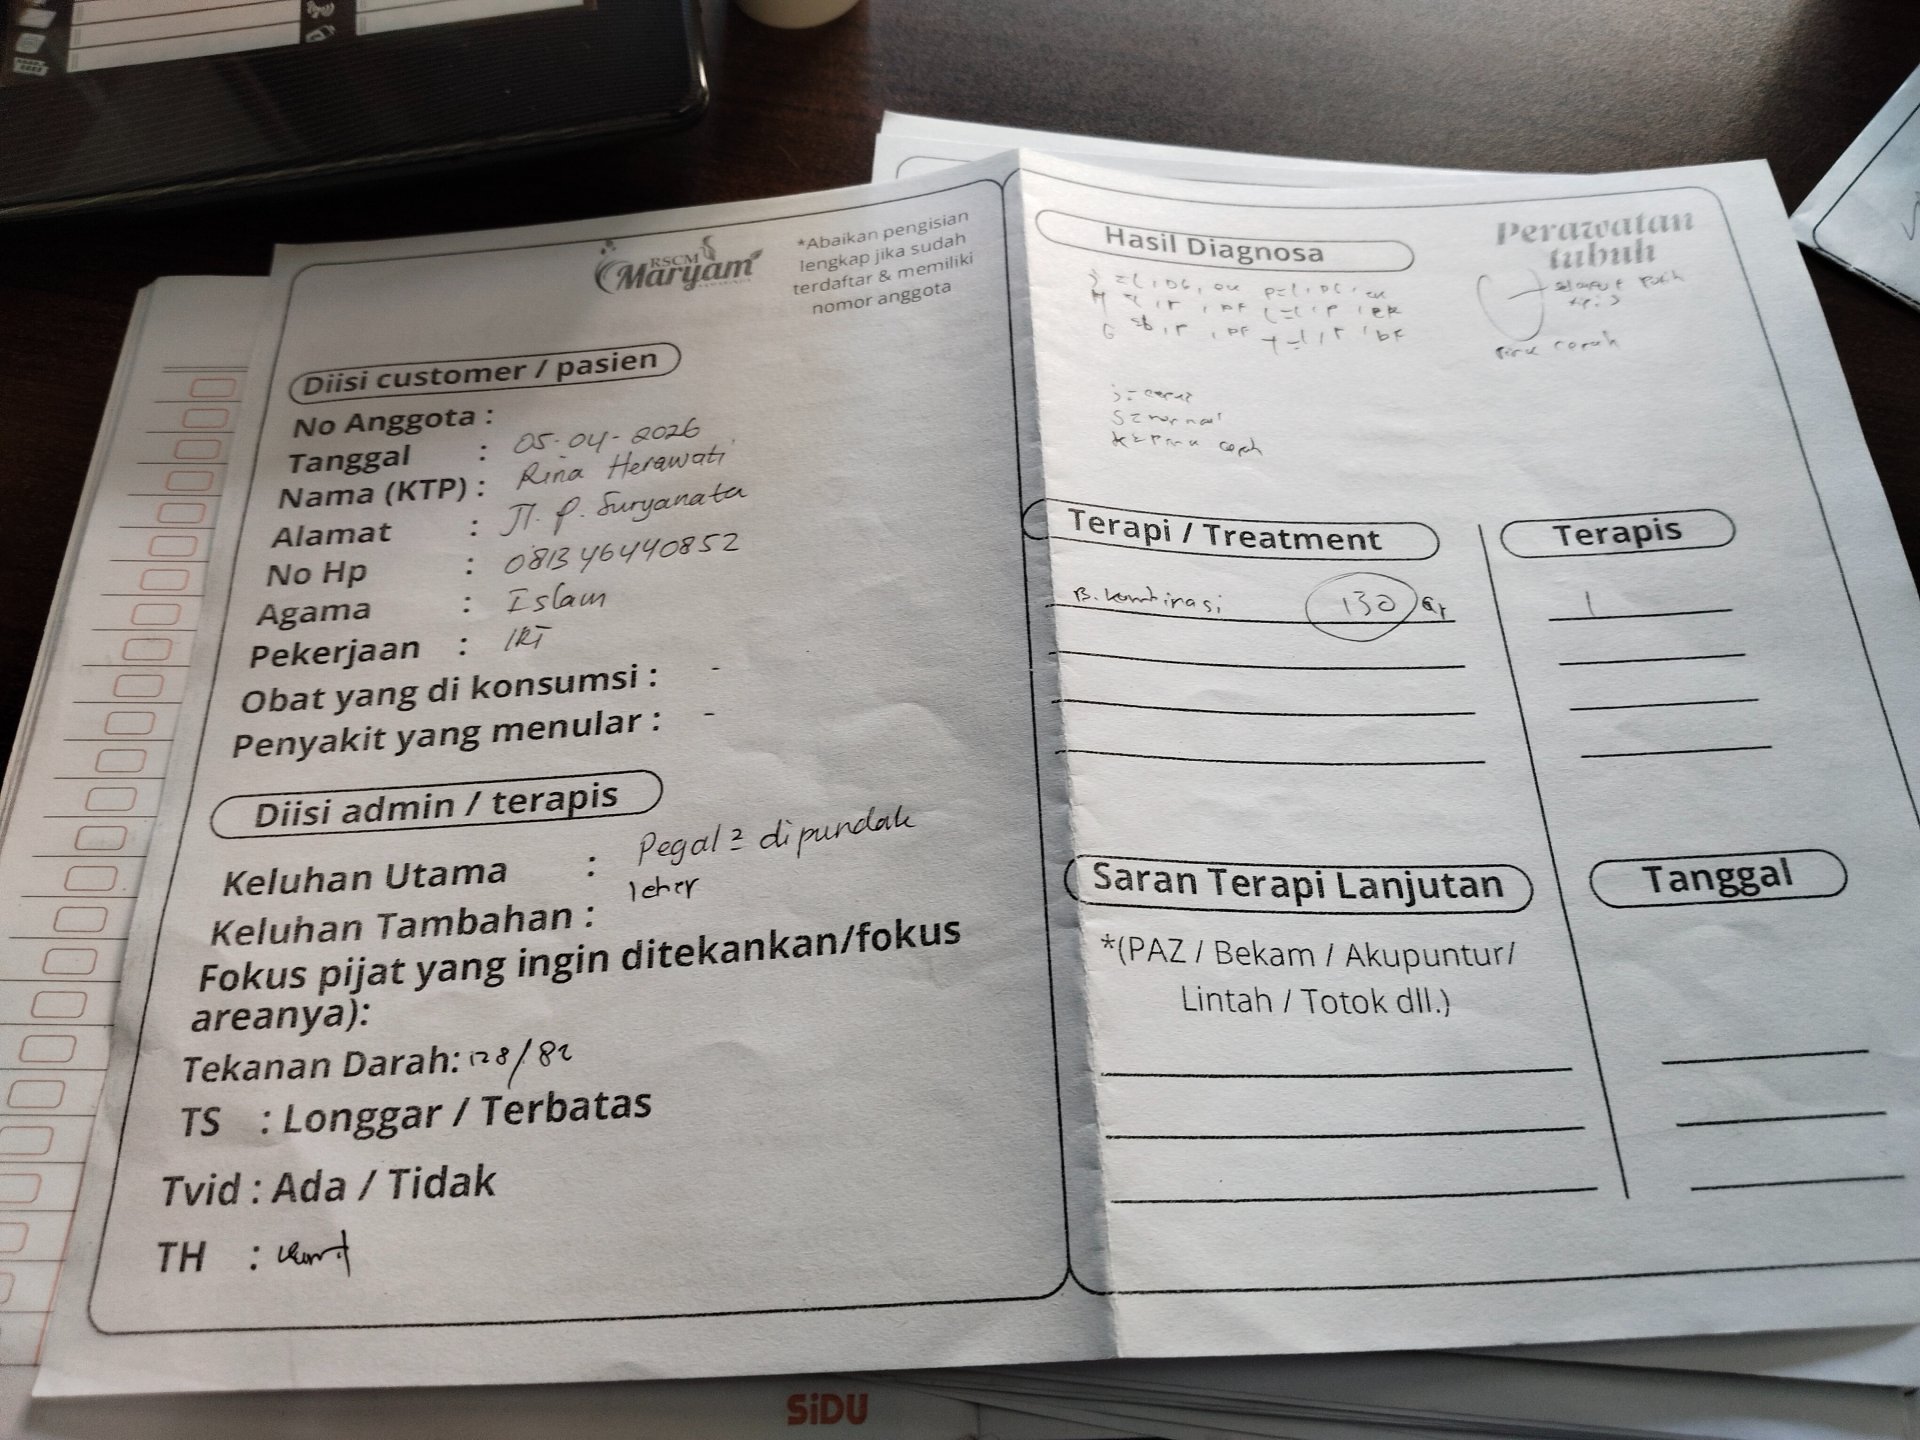 RSCM
Maryam
*Abaikan pengisian
lengkap jika sudah
terdaftar & memiliki
nomor anggota
Diisi customer / pasien
No Anggota :
Tanggal : 05-04-2026
Nama (KTP) : Rina Herawati
Alamat : Jl. P. Suryanata
No Hp : 081346440852
Agama : Islam
Pekerjaan : IRT
Obat yang di konsumsi : -
Penyakit yang menular : -
Diisi admin / terapis
Keluhan Utama : Pegal2 di pundak
leher
Keluhan Tambahan :
Fokus pijat yang ingin ditekankan/fokus
areanya):
Tekanan Darah: 128/82
TS : Longgar / Terbatas
Tvid : Ada / Tidak
TH :
Hasil Diagnosa
Perawatan
tubuh
S = normal
Terapi / Treatment
Terapis
B. kombinasi 130
Saran Terapi Lanjutan
Tanggal
*(PAZ / Bekam / Akupuntur/
Lintah / Totok dll.)
SiDU